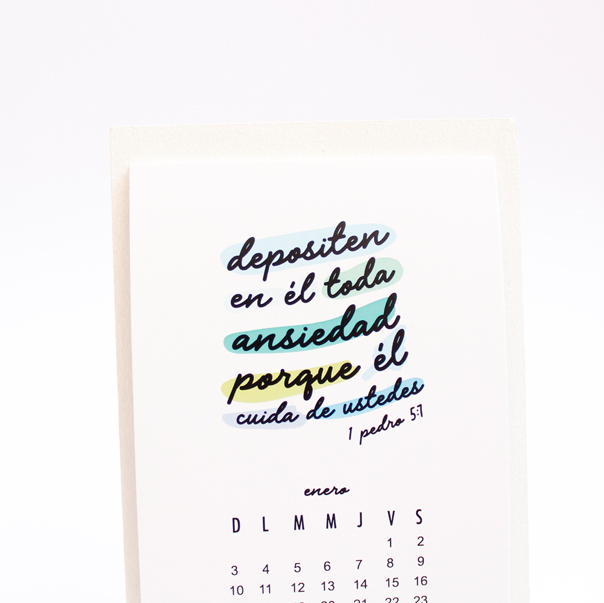 depositen
en él toda
ansiedad
porque él
cuida de ustedes
1 pedro 5:7
enero
D L M M J V S
1 2
3 4 5 6 7 8 9
10 11 12 13 14 15 16
20 21 22 23